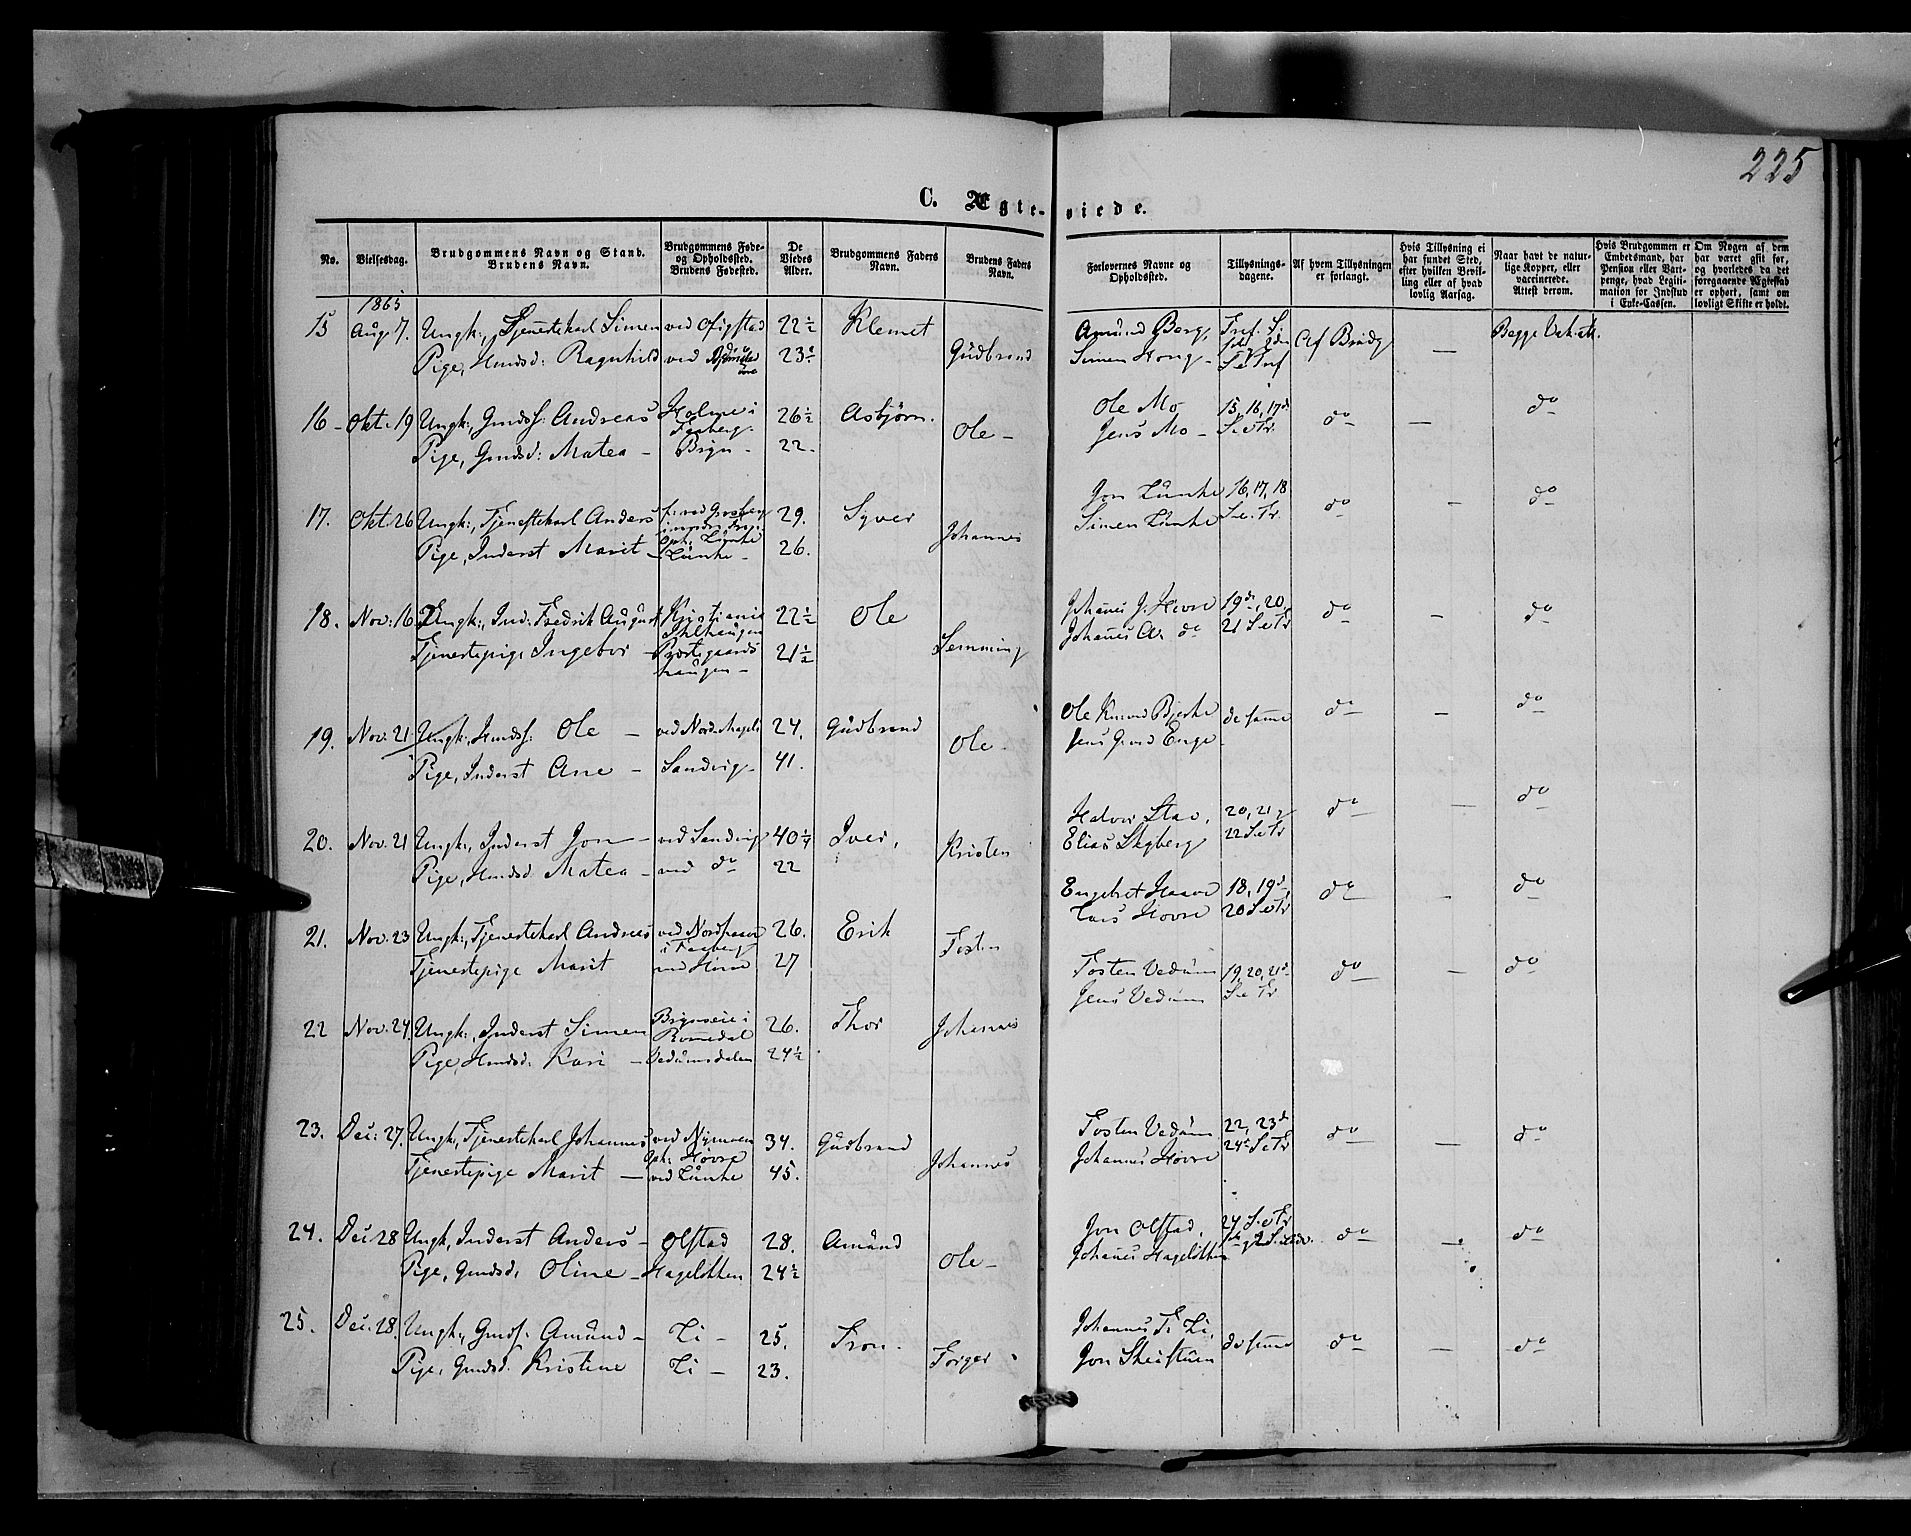 225
C. Ægte-viede.
No.
Vielsesdag.
Brudgommens Navn og Stand.
Brudens Navn.
Brudgommens Føde-
og Opholdssted.
Brudens Fødested.
De
Viedes
Alder.
Brudgommens Faders
Navn.
Brudens Faders
Navn.
Forlovernes Navne og
Opholdssted.
Tillysnings-
dagene.
Af hvem Tillysningen
er forlangt.
Hvis Tillysning ei
har fundet Sted,
efter hvilken Bevil-
ling eller af hvad
lovlig Aarsag.
Naar havt de natur-
lige Kopper, eller
vaccinerede.
Attest derom.
Hvis Brudgommen er
Embedsmand, har
Pension eller Vart-
penge, hvad Legiti-
mation for Indskud
i Enke-Cassen.
Om Nogen af dem
har været gift før,
og hvorledes da det
foregaaende Ægteskab
er ophørt, samt om
lovligt Skifte er holdt.
1865
15 Aug 7. Ungk:, Tjenestekarl Simen ved 22½ Klemet Amund Berg, Af Brudg — Begge
Pige, Husmd: Ragnhild ved 23 Gudbrand Simen Hong -
16 - Okt. 19 Ungk:, Gmdsf: Andreas Holme i 26½ Asbjørn. Ole Mo 15, 16, 17d do — do
Faaberg.
Pige, Gmdsd: Matea - Bryn - 22. Ole - Jens Mo - S. e Tr.
17. Okt. 26 Ungk:, Tjenestekarl Anders 29. Syver Jon Lunke 16, 17, 18 do — do
Oph: Lunke
Pige, Inderst Marit - Lunke - 26. Johannes Simen Lunke S. e. Tr.
18. Nov: 16 Ungk:, Ind: Fredrik August Kristiania 22½ Ole Johanes J. Hovre 19de, 20, do — do
Tjenestepige Ingebor - Præstegaards 21½ Semming Johanes A. do 21 S. e Tr
haugen -
19. Nov: 21 Ungk:, Husmdsf: Ole - ved Nord 24, Gudbrand Ole Bjerke de samme do — do
Pige, Inderst Ane - Sandvig - 41. Ole - Jens Enge -
20. Nov. 21 Ungk:, Inderst Jon - ved Sandvig 40¼ Iver, Halvor Stav, 20, 21 do — do
Pige, Husmdsd Matea - ved do 22 Kristen Elias Skyberg 22 S. e Tr
21. Nov. 23 Ungk:, Tjenestekarl Andreas ved 26. Erik Engebret Haave 18, 19de do — do
i Faaberg
Tjenestepige Marit ved Hovre 27 Tosten Lars Hovre 20 S. e Tr
22 Nov. 24. Ungk:, Inderst Simen Brynseie i 26. Thor Tosten Vedum 19, 20, 21de do — do
Romedal
Pige, Husmdsd: Kari - Vedumsdalen 24½ Johannes Jens Vedum S. e Tr
23. Dec: 27. Ungk:, Tjenestekarl Johannes ved Nymoen 34. Gudbrand Tosten Vedum 22, 23d do — do
Oph: Hovre
Tjenestepige Marit - ved Lunke 45. Johannes Johannes Hovre 24de S. e Tr
24. Dec: 28 Ungk, Inderst Anders - Olstad 28. Amund Jon Olstad, 24 S. e Tr do — do
Pige, Gmdsd: Oline - Hageløkken 24½ Ole - Johannes Hageløkken
25. Dec: 28. Ungk:, Gmdsf: Amund - Li - 25. Tron. Johannes T. Li, de samme do — do
Pige, Gmdsd: Kristine Li - 23. Torger Jon Skeistuen